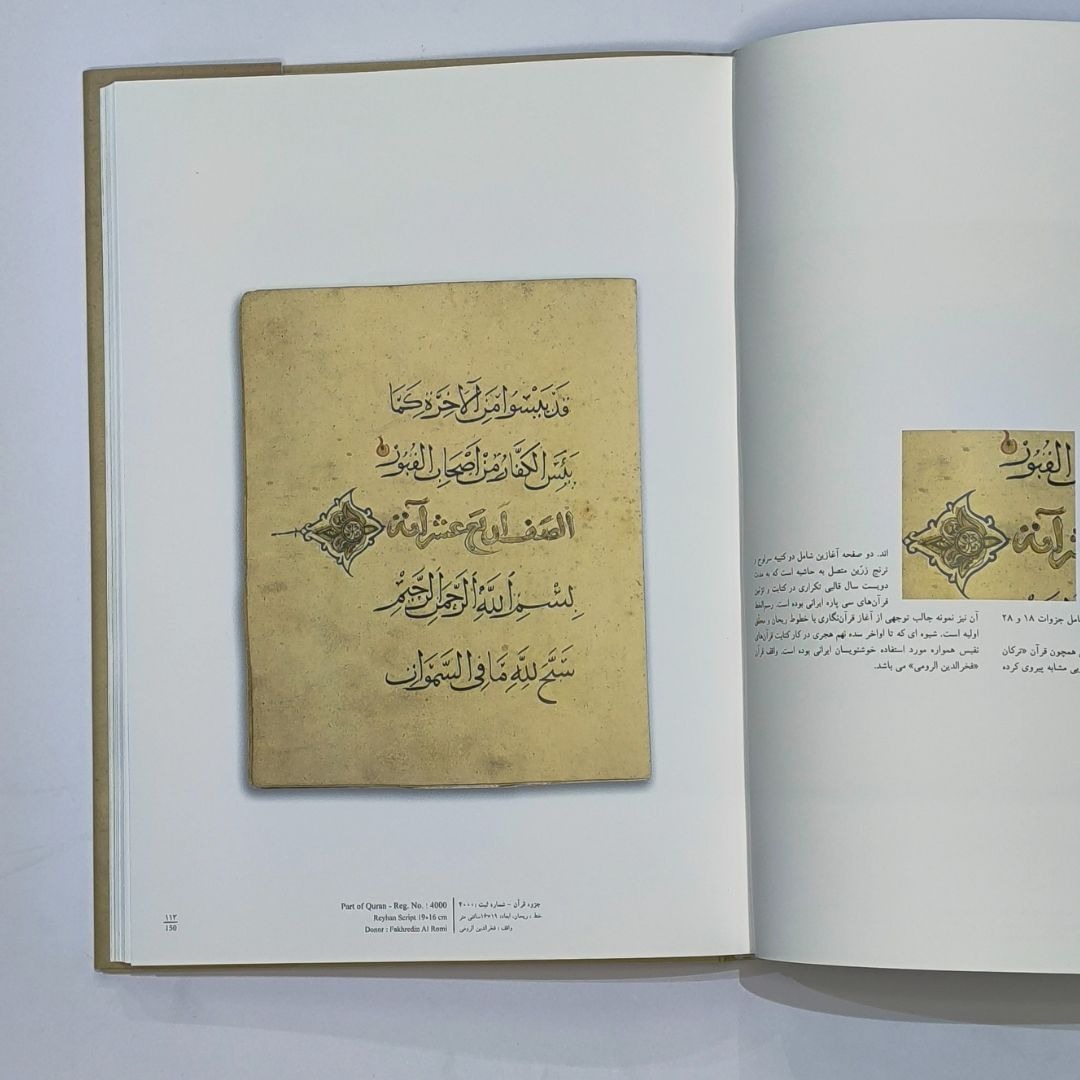 قَدْ يَئِسُوا مِنَ الْآخِرَةِ كَمَا
يَئِسَ الْكُفَّارُ مِنْ أَصْحَابِ الْقُبُورِ
الصف اربع عشر آية
بِسْمِ اللَّهِ الرَّحْمَنِ الرَّحِيمِ
سَبَّحَ لِلَّهِ مَا فِي السَّمَوَاتِ
جزوه قرآن - شماره ثبت : ۴۰۰۰
خط : ریحان، ابعاد: ۱۹×۱۶سانتی متر
واقف : فخرالدین الرومی
Part of Quran - Reg. No. : 4000
Reyhan Script 19*16 cm
Donor : Fakhredin Al Romi
۱۱۳
150
القبور
عشر آية
امل جزوات ۱۸ و ۲۸
همچون قرآن «ترکان
یی مشابه پیروی کرده
اند. دو صفحه آغازین شامل دو کتیبه سرلوح و
ترنج زرّین متصل به حاشیه است که به مدت
دویست سال قالبی تکراری در کتابت و تزئین
قرآن‌های سی پاره ایرانی بوده است. رسم‌الخط
آن نیز نمونه جالب توجهی از آغاز قرآن‌نگاری با خطوط ریحان و محقق
اولیه است. شیوه ای که تا اواخر سده نهم هجری در کار کتابت قرآن‌های
نفیس همواره مورد استفاده خوشنویسان ایرانی بوده است. واقف قرآن
«فخرالدین الرومی» می باشد.